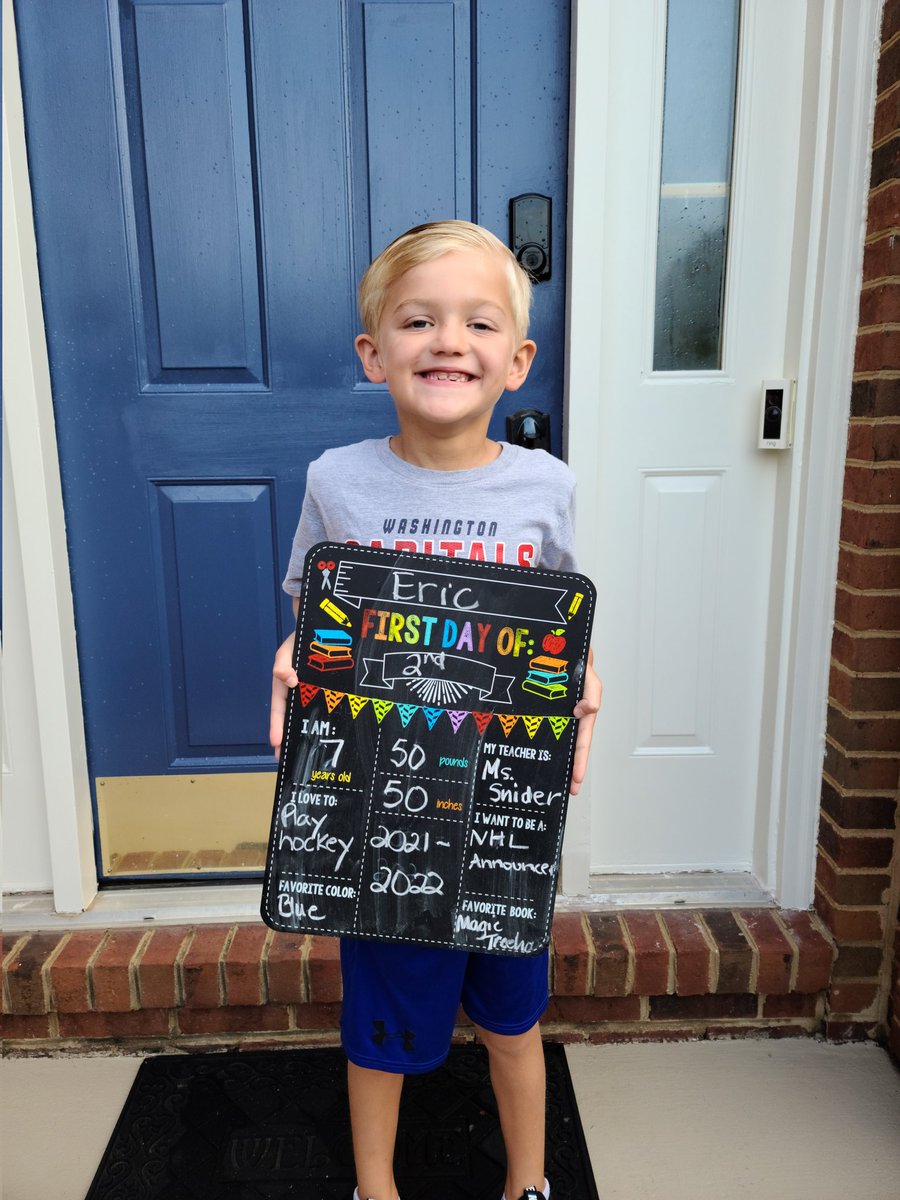 WASHINGTON
CAPITALS
Eric
FIRST DAY OF:
2nd
I AM:
7
years old
I LOVE TO:
Play
hockey
FAVORITE COLOR:
Blue
50 pounds
50 inches
2021-
2022
MY TEACHER IS:
Ms.
Snider
I WANT TO BE A:
NHL
Announcer
FAVORITE BOOK:
Magic
ring
WELCOME